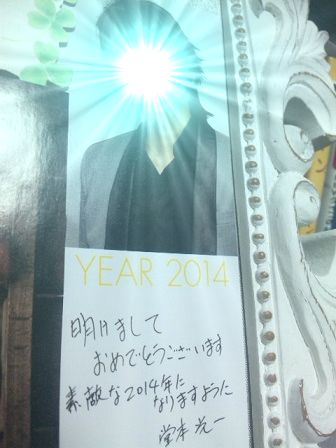 YEAR 2014
明けまして
おめでとうございます
素敵な2014年に
なりますように
堂本光一